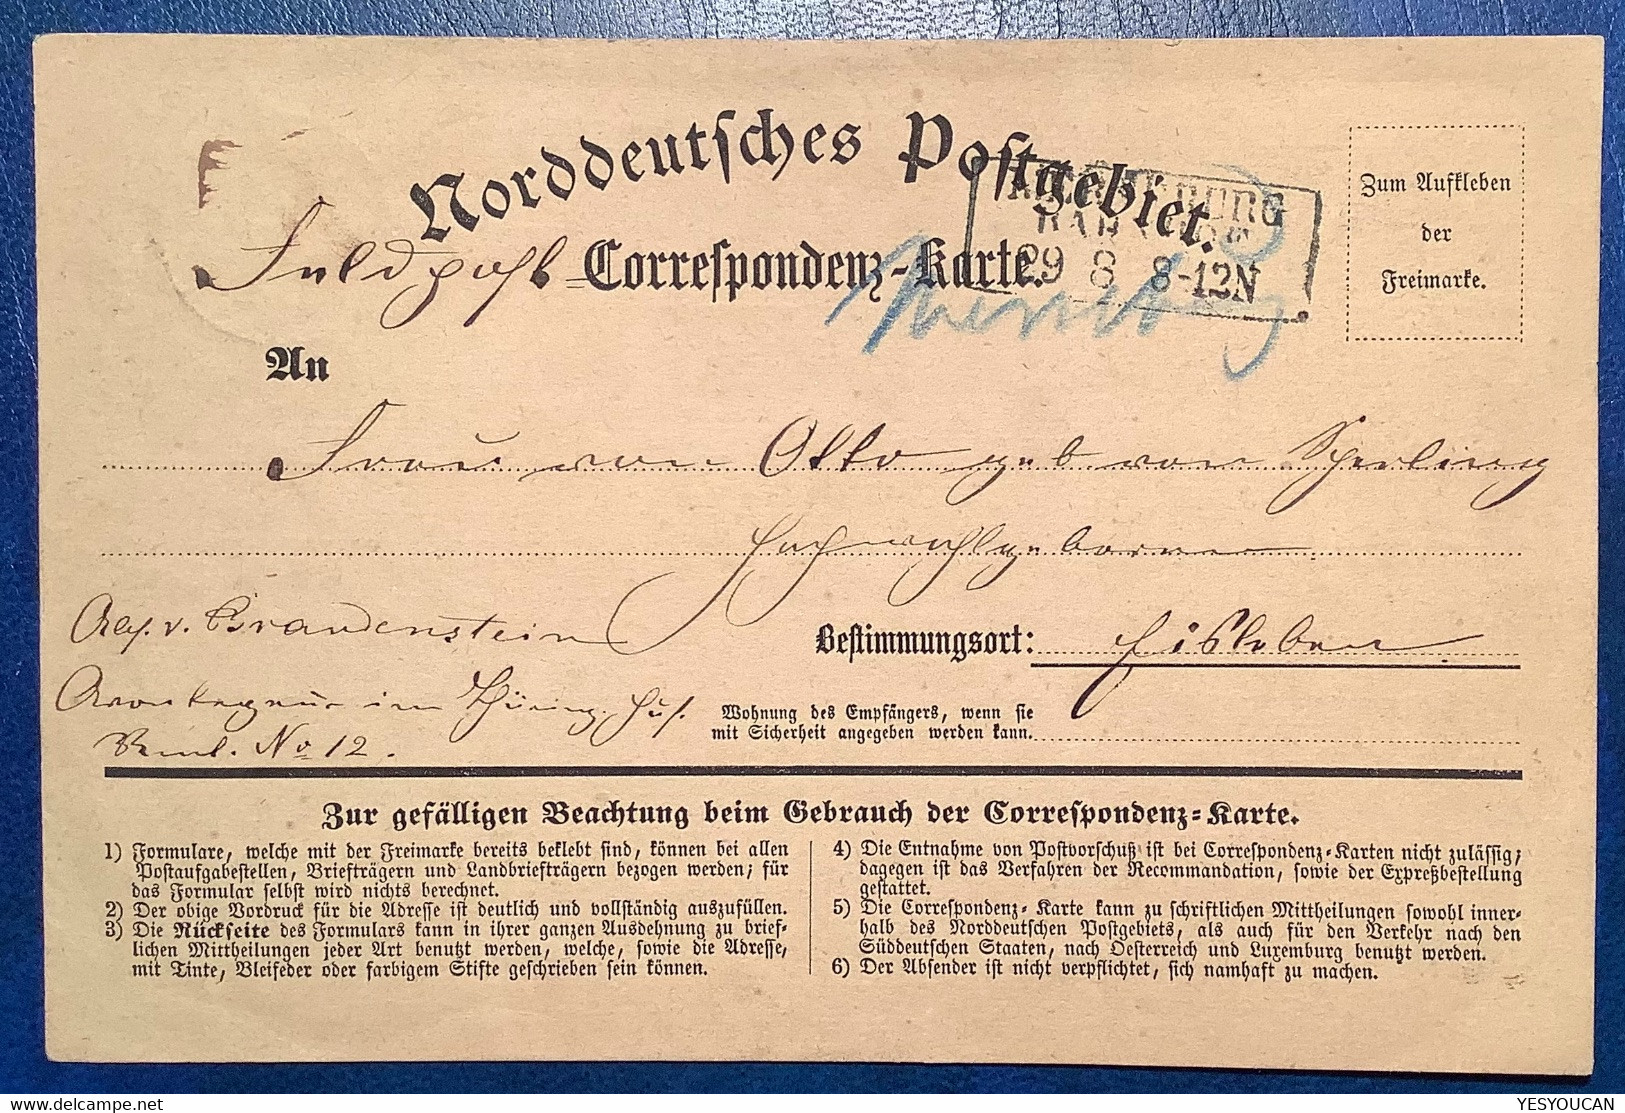 Norddeutsches Postgebiet.
Feldpost-Correspondenz-Karte.
MERSEBURG
BAHNHOF
29 8 8-12N
Merseburg
Zum Aufkleben
der
Freimarke.
An
Frau von Otto geb von Sperling
Hochwohlgeboren
v. Brandenstein
Bestimmungsort: Eisleben
im Thüring. Hus.
Rgmt. No 12.
Wohnung des Empfängers, wenn sie
mit Sicherheit angegeben werden kann.
Zur gefälligen Beachtung beim Gebrauch der Correspondenz-Karte.
1) Formulare, welche mit der Freimarke bereits beklebt sind, können bei allen
Postaufgabestellen, Briefträgern und Landbriefträgern bezogen werden; für
das Formular selbst wird nichts berechnet.
2) Der obige Vordruck für die Adresse ist deutlich und vollständig auszufüllen.
3) Die Rückseite des Formulars kann in ihrer ganzen Ausdehnung zu brief-
lichen Mittheilungen jeder Art benutzt werden, welche, sowie die Adresse,
mit Tinte, Bleifeder oder farbigem Stifte geschrieben sein können.
4) Die Entnahme von Postvorschuß ist bei Correspondenz-Karten nicht zulässig;
dagegen ist das Verfahren der Recommandation, sowie der Expreßbestellung
gestattet.
5) Die Correspondenz-Karte kann zu schriftlichen Mittheilungen sowohl inner-
halb des Norddeutschen Postgebiets, als auch für den Verkehr nach den
Süddeutschen Staaten, nach Oesterreich und Luxemburg benutzt werden.
6) Der Absender ist nicht verpflichtet, sich namhaft zu machen.
YESYOUCAN